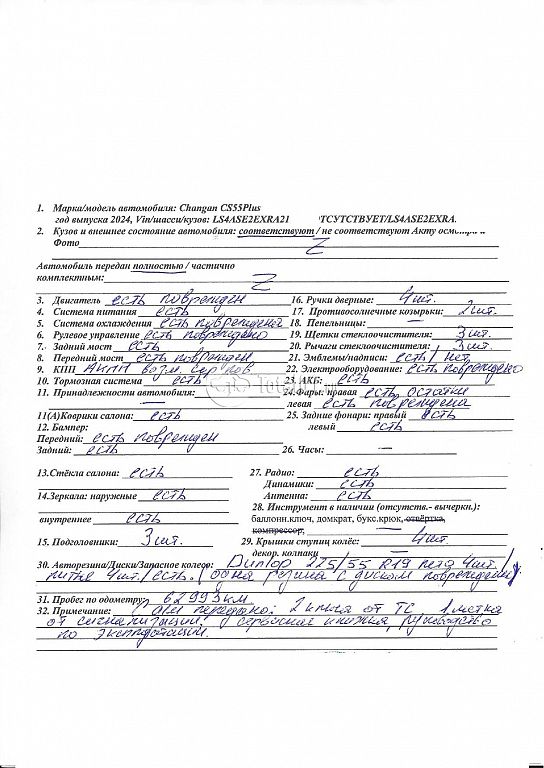 1. Марка/модель автомобиля: Changan CS55Plus
год выпуска 2024, Vin/шасси/кузов: LS4ASE2EXRA21 ТСУТСТВУЕТ/LS4ASE2EXRA.
2. Кузов и внешнее состояние автомобиля: соответствуют / не соответствуют Акту осмотра и
Фото Z
Автомобиль передан полностью / частично
комплектным: Z
3. Двигатель есть поврежден 16. Ручки дверные: 4 шт.
4. Система питания есть 17. Противосолнечные козырьки: 2 шт.
5. Система охлаждения есть повреждена 18. Пепельницы:
6. Рулевое управление есть повреждено 19. Щетки стеклоочистителя: 3 шт.
7. Задний мост есть 20. Рычаги стеклоочистителя: 3 шт.
8. Передний мост есть поврежден 21. Эмблемы/надписи: есть / нет
9. КПП АКПП 22. Электрооборудование: есть повреждено
10. Тормозная система есть 23. АКБ: есть
11. Принадлежности автомобиля: 24. Фары: правая есть остатки
левая есть повреждена
11(А)Коврики салона: есть 25. Задние фонари: правый есть
12. Бампер: левый есть
Передний: есть поврежден
Задний: есть 26. Часы:
13. Стёкла салона: есть 27. Радио: есть
Динамики: есть
14. Зеркала: наружные есть Антенна: есть
28. Инструмент в наличии (отсутств.- вычеркн.):
внутреннее есть баллонн.ключ, домкрат, букс.крюк, отвёртка,
компрессор,
15. Подголовники: 3 шт. 29. Крышки ступиц колёс: 4 шт.
декор. колпаки
30. Авторезина/Диски/Запасное колесо: Dunlop 225/55 R19 лето 4 шт /
литые 4 шт / есть. (одна резина с диском повреждены)
31. Пробег по одометру: 62993 км.
32. Примечание: передано: 2 ключа от ТС, 1 метка
от сигнализации, сервисная книжка, руководство
по эксплуатации.